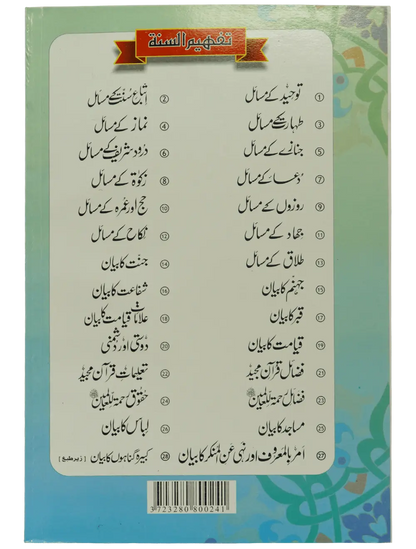 تفہیم السنۃ
① توحید کے مسائل ② اتباع سنت کے مسائل
③ طہارت کے مسائل ④ نماز کے مسائل
⑤ جنازے کے مسائل ⑥ درود شریف کے مسائل
⑦ دعا کے مسائل ⑧ زکوٰۃ کے مسائل
⑨ روزوں کے مسائل ⑩ حج اور عمرہ کے مسائل
⑪ جہاد کے مسائل ⑫ نکاح کے مسائل
⑬ طلاق کے مسائل ⑭ جنت کا بیان
⑮ جہنم کا بیان ⑯ شفاعت کا بیان
⑰ قبر کا بیان ⑱ علامات قیامت کا بیان
⑲ قیامت کا بیان ⑳ دوستی اور دشمنی
㉑ فضائل قرآن مجید ㉒ تعلیمات قرآن مجید
㉓ فضائل رحمۃ للعالمین ㉔ حقوق رحمۃ للعالمین
㉕ مساجد کا بیان ㉖ لباس کا بیان
㉗ امر بالمعروف اور نہی عن المنکر کا بیان ㉘ کبیرہ گناہوں کا بیان [زیر طبع]
3723280800241